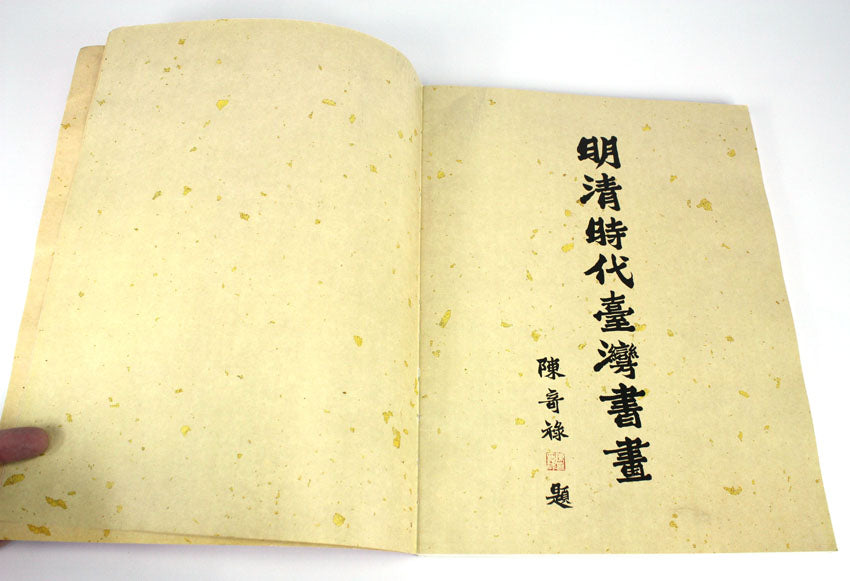 明清時代臺灣書畫
陳奇祿
題